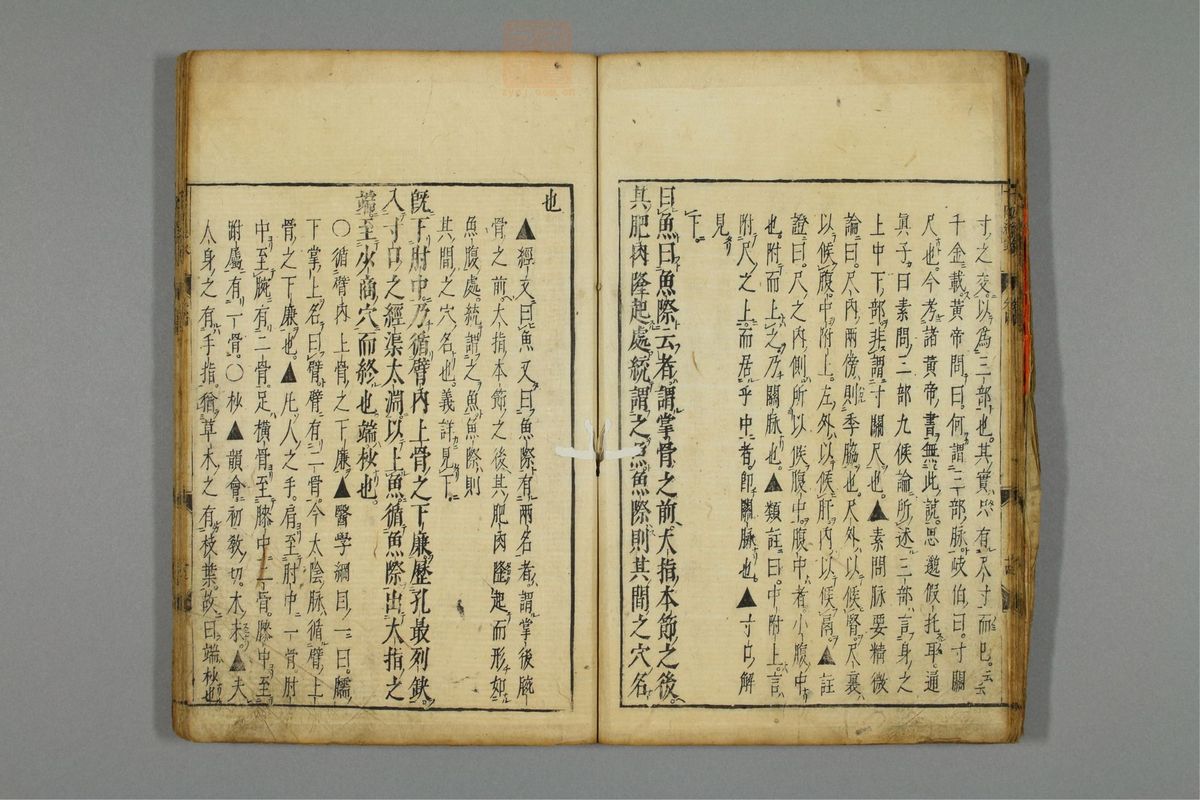 寸之交以為三部也其實只有尺寸而已云云
千金載黃帝問曰何謂三部脉岐伯曰寸關
尺也今考諸黃帝書無此説思邈假托耳通
眞子曰素問三部九候論所述三部言身之
上中下部非謂寸關尺也▲素問脉要精微
論曰尺內兩傍則季脇也尺外以候腎尺裏
以候腹中附上左外以候肝內以候鬲▲註
證曰尺之內側所以候腹中腹中者小腹中
也附而上之乃關脉也▲類註曰中附上言
附尺之上而居乎中者卽關脉也▲寸口解
見
下
曰魚曰魚際云者謂掌骨之前大指本節之後
其肥肉隆起處統謂之魚魚際則其間之穴名
也
▲經文曰魚又曰魚際有兩名者謂掌後腕
骨之前大指本節之後其肥肉隆起而形如
魚腹處統謂之魚魚際則
其間之穴名也義詳見下
旣下肘中乃循臂內上骨之下廉歷孔最列缺
入寸口之經渠太淵以上魚循魚際出大指之
端至少商穴而終也端杪也
〇循臂內上骨之下廉▲醫學綱目一曰臑
下掌上名曰臂臂有二骨今太陰脉循臂上
骨之下廉也▲凡人之手肩至肘中一骨肘
中至腕有二骨足橫骨至膝中一骨膝中至
跗處有一骨〇杪▲韻會初敎切木末▲夫
人身之有手指猶草木之有枝葉故曰端杪也